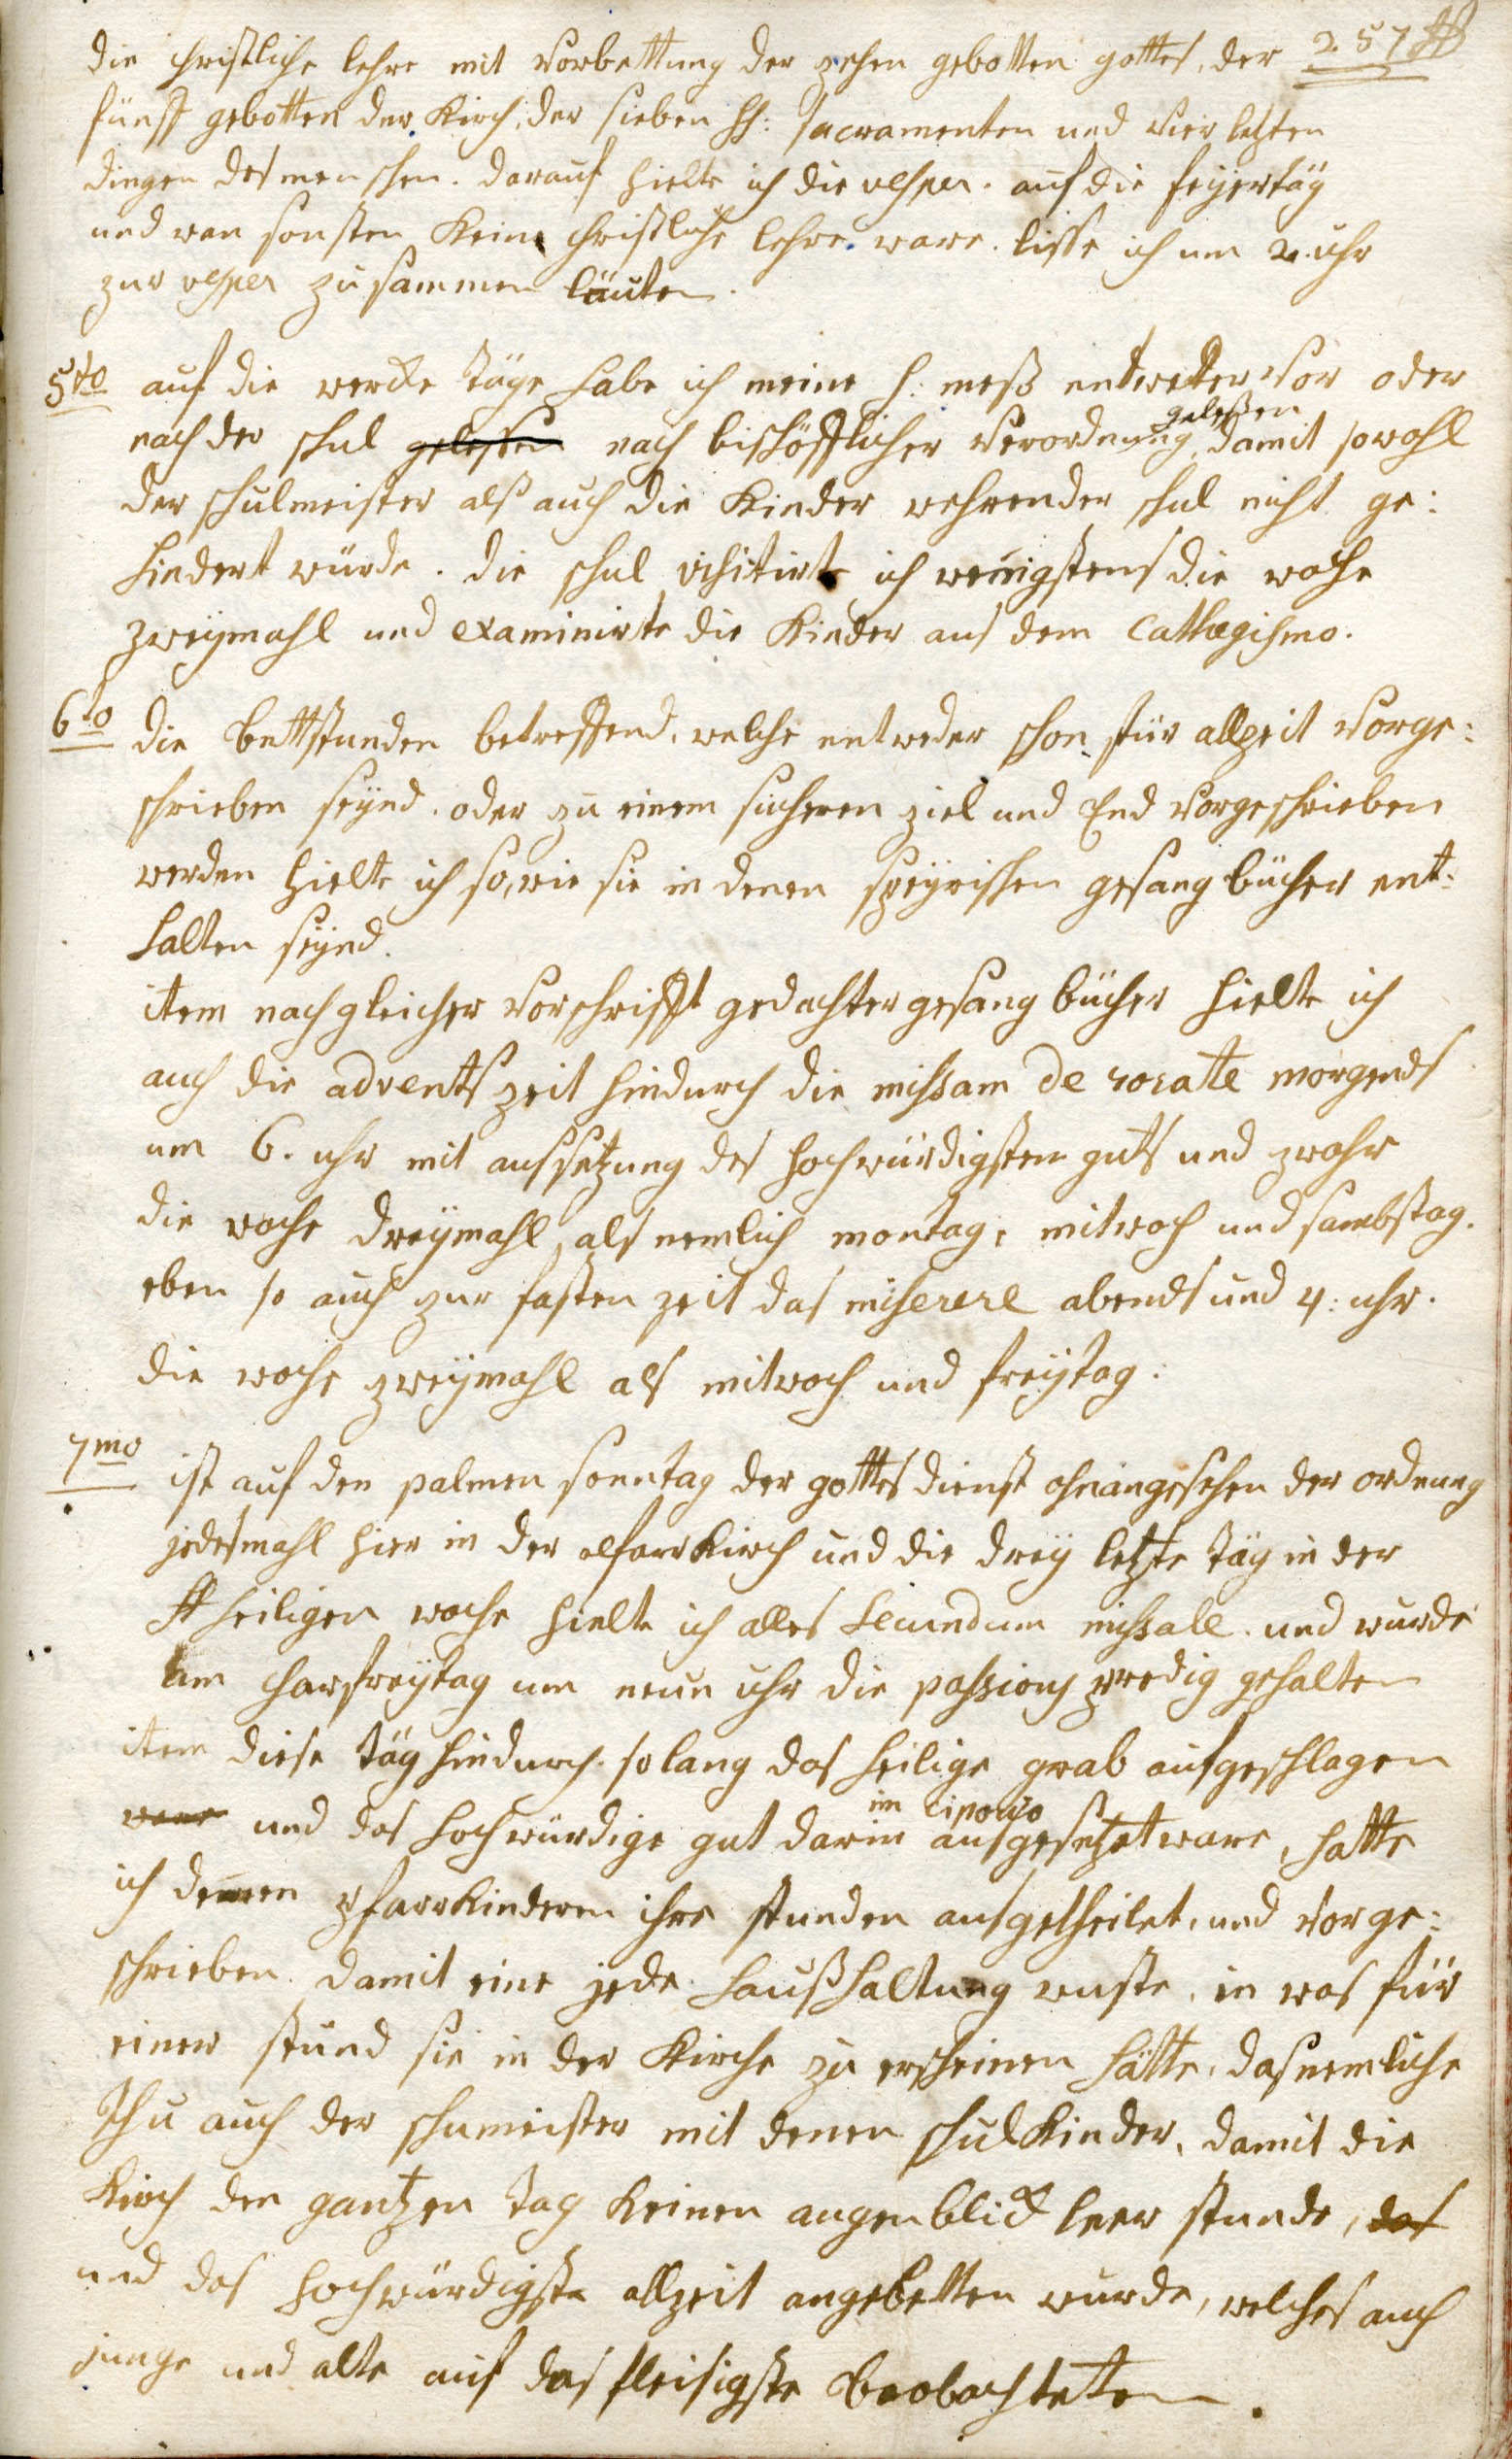 257
die christliche lehre mit vorbettung der zehen gebotten gottes, der
fünff gebotten der Kirch, der sieben hh: sacramenten und vier letzten
dingen des menschen. darauf hielte ich die vesper. auf die feyertäg
und wan sonsten Keine christliche lehre ware. lisse ich um 2. uhr
zur vesper zusammen läuten.
5to auf die wercke täge habe ich meine h: meß entwetter vor oder
gelesen
nach der schul gelessen nach bischöfflicher verordnung, damit sowohl
der schulmeister alß auch die Kinder wehrender schul nicht ge:
hindert würde. die schul visitirte ich wenigstens die woche
zweymahl und examinirte die Kinder aus dem Cathegismo.
6to die bettstunden betreffend, welche entweder schon für allzeit vorge:
schrieben seynd. oder zu einem sicheren ziel und End vorgeschrieben
werden hielte ich so, wie sie in denen speyrischen gesang bücher ent:
halten seynd.
item nach gleicher vorschrifft gedachter gesang bücher hielte ich
auch die advents zeit hindurch die missam de rorate morgends
um 6. uhr mit aussetzung des hochwürdigsten guts und zwahr
die woche dreymahl, als nemlich montag, mitwoch und sambstag.
eben so auch zur fasten zeit das miserere abends und 4: uhr.
die woche zweymahl als mitwoch und freytag.
7mo ist auf den palmen sonntag der gottes dienst ohnangesehen der ordnung
jedesmahl hier in der pfarrkirch und die drey letzte täg in der
heiligen woche hielte ich alles secundum missale. und wurde
am charfreytag um neun uhr die passions predig gehalten
item diese täg hindurch so lang das heilige grab aufgeschlagen
im ciporio
ware und das hochwürdige gut darin ausgesetzet ware, hatte
ich denen pfarrkinderen ihre stunden ausgetheilet, und vorge:
schrieben. damit eine jede haußhaltung wuste, in was für
einer stund sie in der Kirche zu erscheinen hätte, das nemliche
thu auch der schumeister mit denen schulkinder, damit die
Kirch den gantzen tag keinen augenblick leer stunde, das
und das hochwürdigste allzeit angebetten wurde, welches auch
junge und alte auf das fleisigste beobachteten.